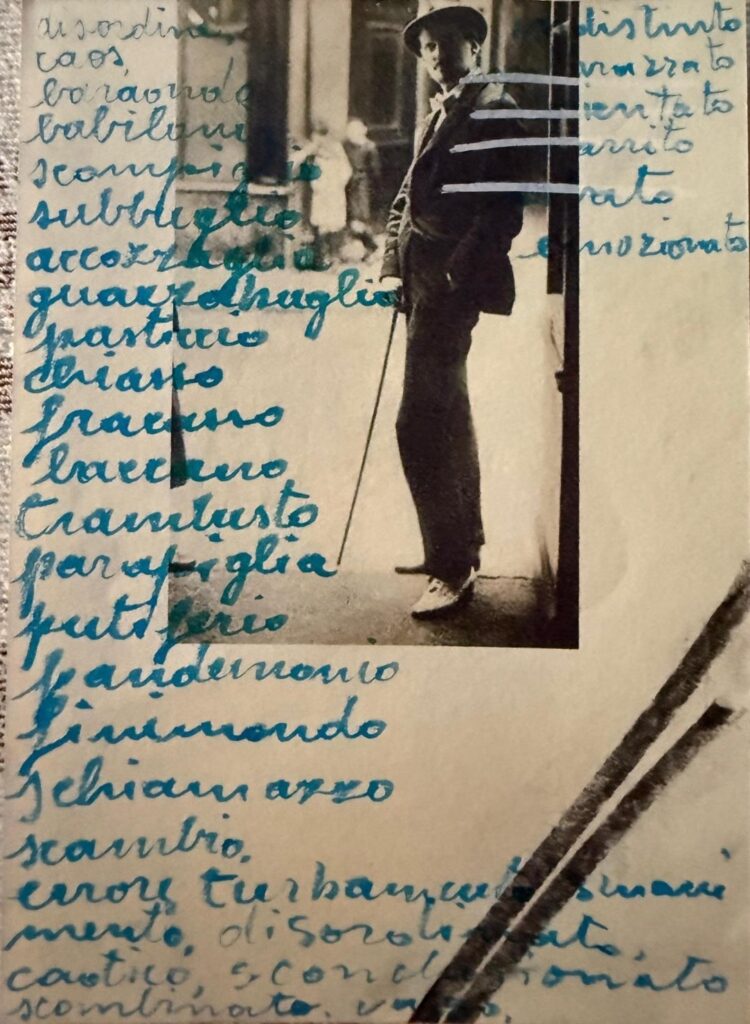 disordine,
caos,
baraonda
babilonia
scompiglio
subbuglio
accozzaglia
guazzabuglio
pasticcio
chiasso
fracasso
baccano
trambusto
parapiglia
putiferio
pandemonio
finimondo
schiamazzo
scambio,
errore, turbamento, smarri
mento, disordinato,
caotico, sconclusionato
scombinato. vago.
distinto
razzato
ientato
arrito
rato
emozionato